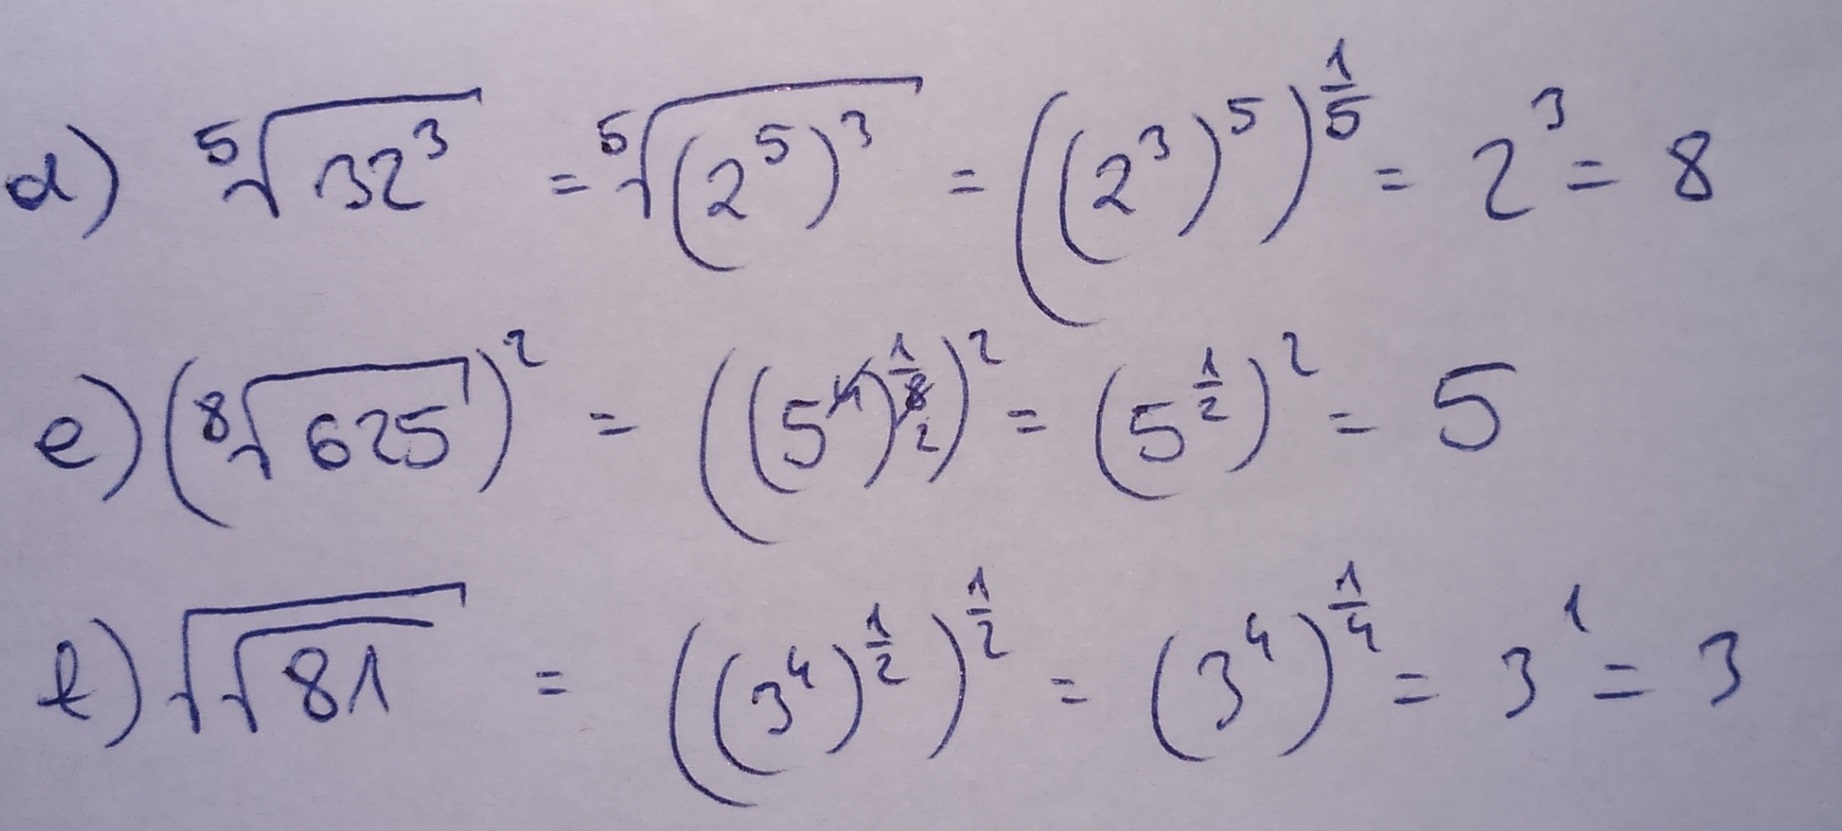 d) ⁵√(32³) = ⁵√((2⁵)³) = ((2³)⁵)^(1/5) = 2³ = 8
e) (⁸√625)² = ((5⁴)^(1/8))² = (5^(1/2))² = 5
f) √(√81) = ((3⁴)^(1/2))^(1/2) = (3⁴)^(1/4) = 3¹ = 3